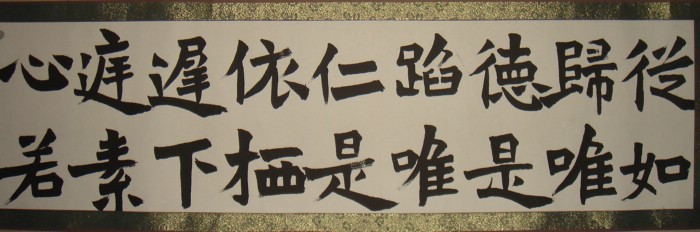 従如
歸唯
徳是
蹈唯
仁是
依栖
遲下
庭素
心若